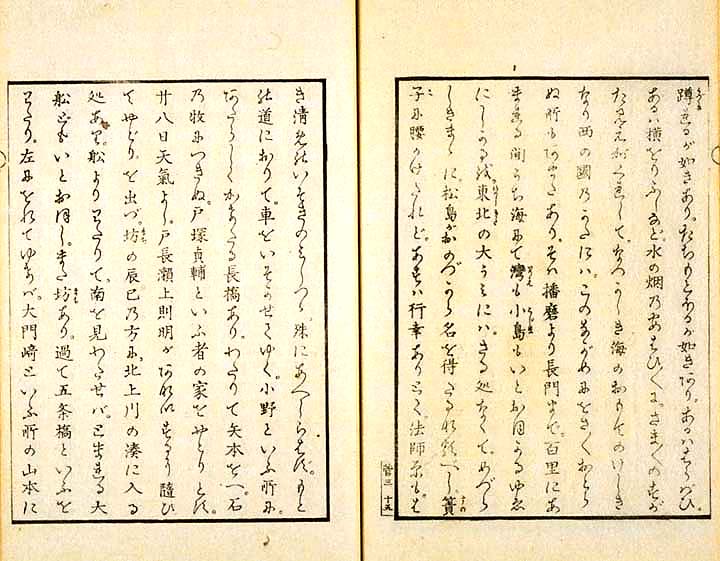 蹲まるが如きあり。たちもとほるが如きあり。あるハはらばひ
あるハ横をりふしなど。水の烟乃あはひ〳〵に。さま〴〵のすが
して。なつかしき海のおもてのけしき
なり西の國乃かたにハ。このながめにをさ〳〵おとら
ぬ所もあまたあり。そハ播磨より長門まで。百里にあ
まれる間うち海にて灣も小島もいとおほかるゆゑ
にしかるを東北の大うみにハ。さる処なくて。めづら
しきまゝに。松島がおのづから名を得たるなるべし。簀
子に腰かけたれど。あすハ行幸ありとて。法師原もは
菅三 十五
き清めのいそぎのみしつゝ。殊にあへしらはず。もと
の道におりて。車をいそがせてゆく。小野といふ所に。
あたらしくかまへたる長橋あり。わたりて矢本をへ。石
乃牧につきぬ。戸塚貞輔といふ者の家をやどりとす。
廿八日天氣よし。戸長瀬上則明があないするまゝ隨ひ
てやどりを出づ。坊の辰巳乃方に。北上川の湊に入る
処あり。船よりわたりて。南を見わたせバ。とまれる大
船どもいとおほし。また坊あり。過て五条橋といふを
わたり。左にをれてゆけバ。大門﨑といふ所の山本に